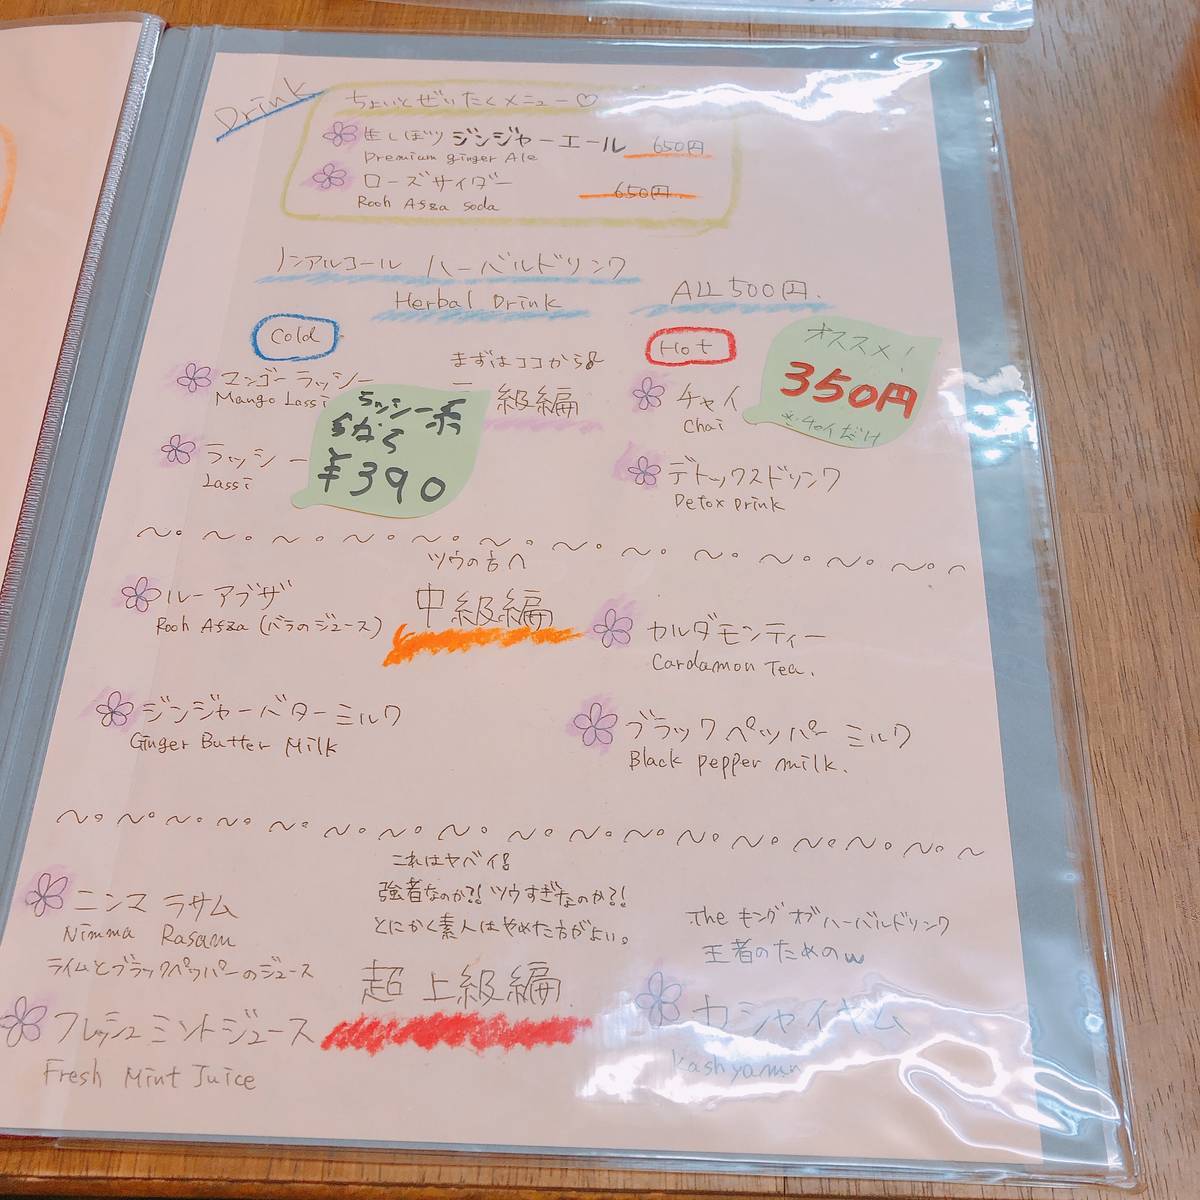 Drink
ちょいとぜいたくメニュー♡
生しぼり ジンジャーエール 650円
Premium ginger Ale
ローズサイダー 650円
Rooh Afza soda
ノンアルコール ハーバルドリンク
Herbal Drink
ALL 500円.
Cold
まずはココから!
級編
マンゴーラッシー
Mango Lassi
ラッシー
Lassi
ラッシー系
¥390
Hot
オススメ!
350円
※チャイだけ
チャイ
Chai
デトックスドリンク
Detox Drink
ツウの方へ
中級編
ルーアブザ
Rooh Afza (バラのジュース)
カルダモンティー
Cardamon Tea.
ジンジャーバターミルク
Ginger Butter Milk
ブラックペッパーミルク
Black pepper milk.
これはヤバイ!
強者なのか?! ツウすぎなのか?!
とにかく素人はやめた方がよい。
超上級編
ニンマ ラサム
Nimma Rasam
ライムとブラックペッパーのジュース
フレッシュミントジュース
Fresh Mint Juice
The キング オブ ハーバルドリンク
王者のためのw
カシャイヤム
Kashyamn